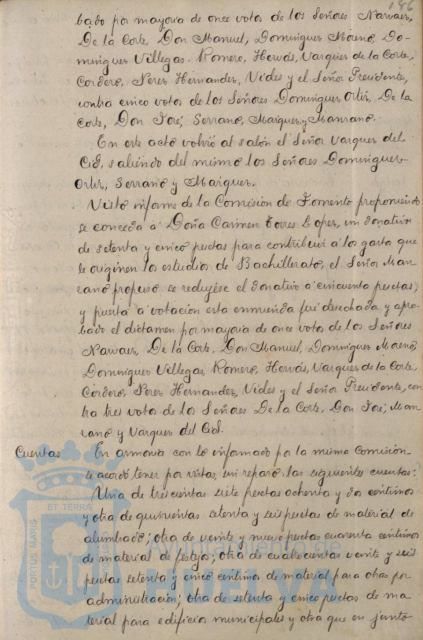 186
bado por mayoria de once votos de los Señores Narvaez,
De la Corte, Don Manuel, Dominguez Maeno, Do-
minguez Villegas, Romero, Hervás, Vazquez de la Corte,
Cordero, Perez Hernandez, Vides y el Señor Presidente,
contra cinco votos de los Señores Dominguez Ortiz, De la
Corte, Don José, Serrano, Marquez y Manzano.
En este acto volvió al salón el Señor Vazquez del
Cid, saliendo del mismo los Señores Dominguez
Ortiz, Serrano y Marquez.
Visto informe de la Comisión de Fomento proponiendo
se conceda á Doña Carmen Torres Lopez, un donativo
de setenta y cinco pesetas para contribuir á los gastos que
le originen los estudios de Bachillerato, el Señor Man-
zano propuso se redujese el donativo á cincuenta pesetas,
y puesta á votación esta enmienda fué desechada y apro-
bado el dictamen por mayoria de once votos de los Señores
Narvaez, De la Corte, Don Manuel, Dominguez Maeno,
Dominguez Villegas, Romero, Hervás, Vazquez de la Corte,
Cordero, Perez Hernandez, Vides y el Señor Presidente, con-
tra tres votos de los Señores De la Corte, Don José, Man-
zano y Vazquez del Cid.
Cuentas En armonia con lo informado por la misma Comisión
se acordó tener por vistas, sin reparo, las siguientes cuentas:
Una de trescientas siete pesetas ochenta y dos centimos
y otra de quinientas setenta y seis pesetas de material de
alumbrado; otra de veinte y nueve pesetas cuarenta centimos
de material de festejos; otra de cuatrocientas veinte y seis
pesetas setenta y cinco centimos de material para obras por
administración; otra de setenta y cinco pesetas de ma-
terial para edificios municipales y otra que en junto
PORTUS MARIS
ET TERRA